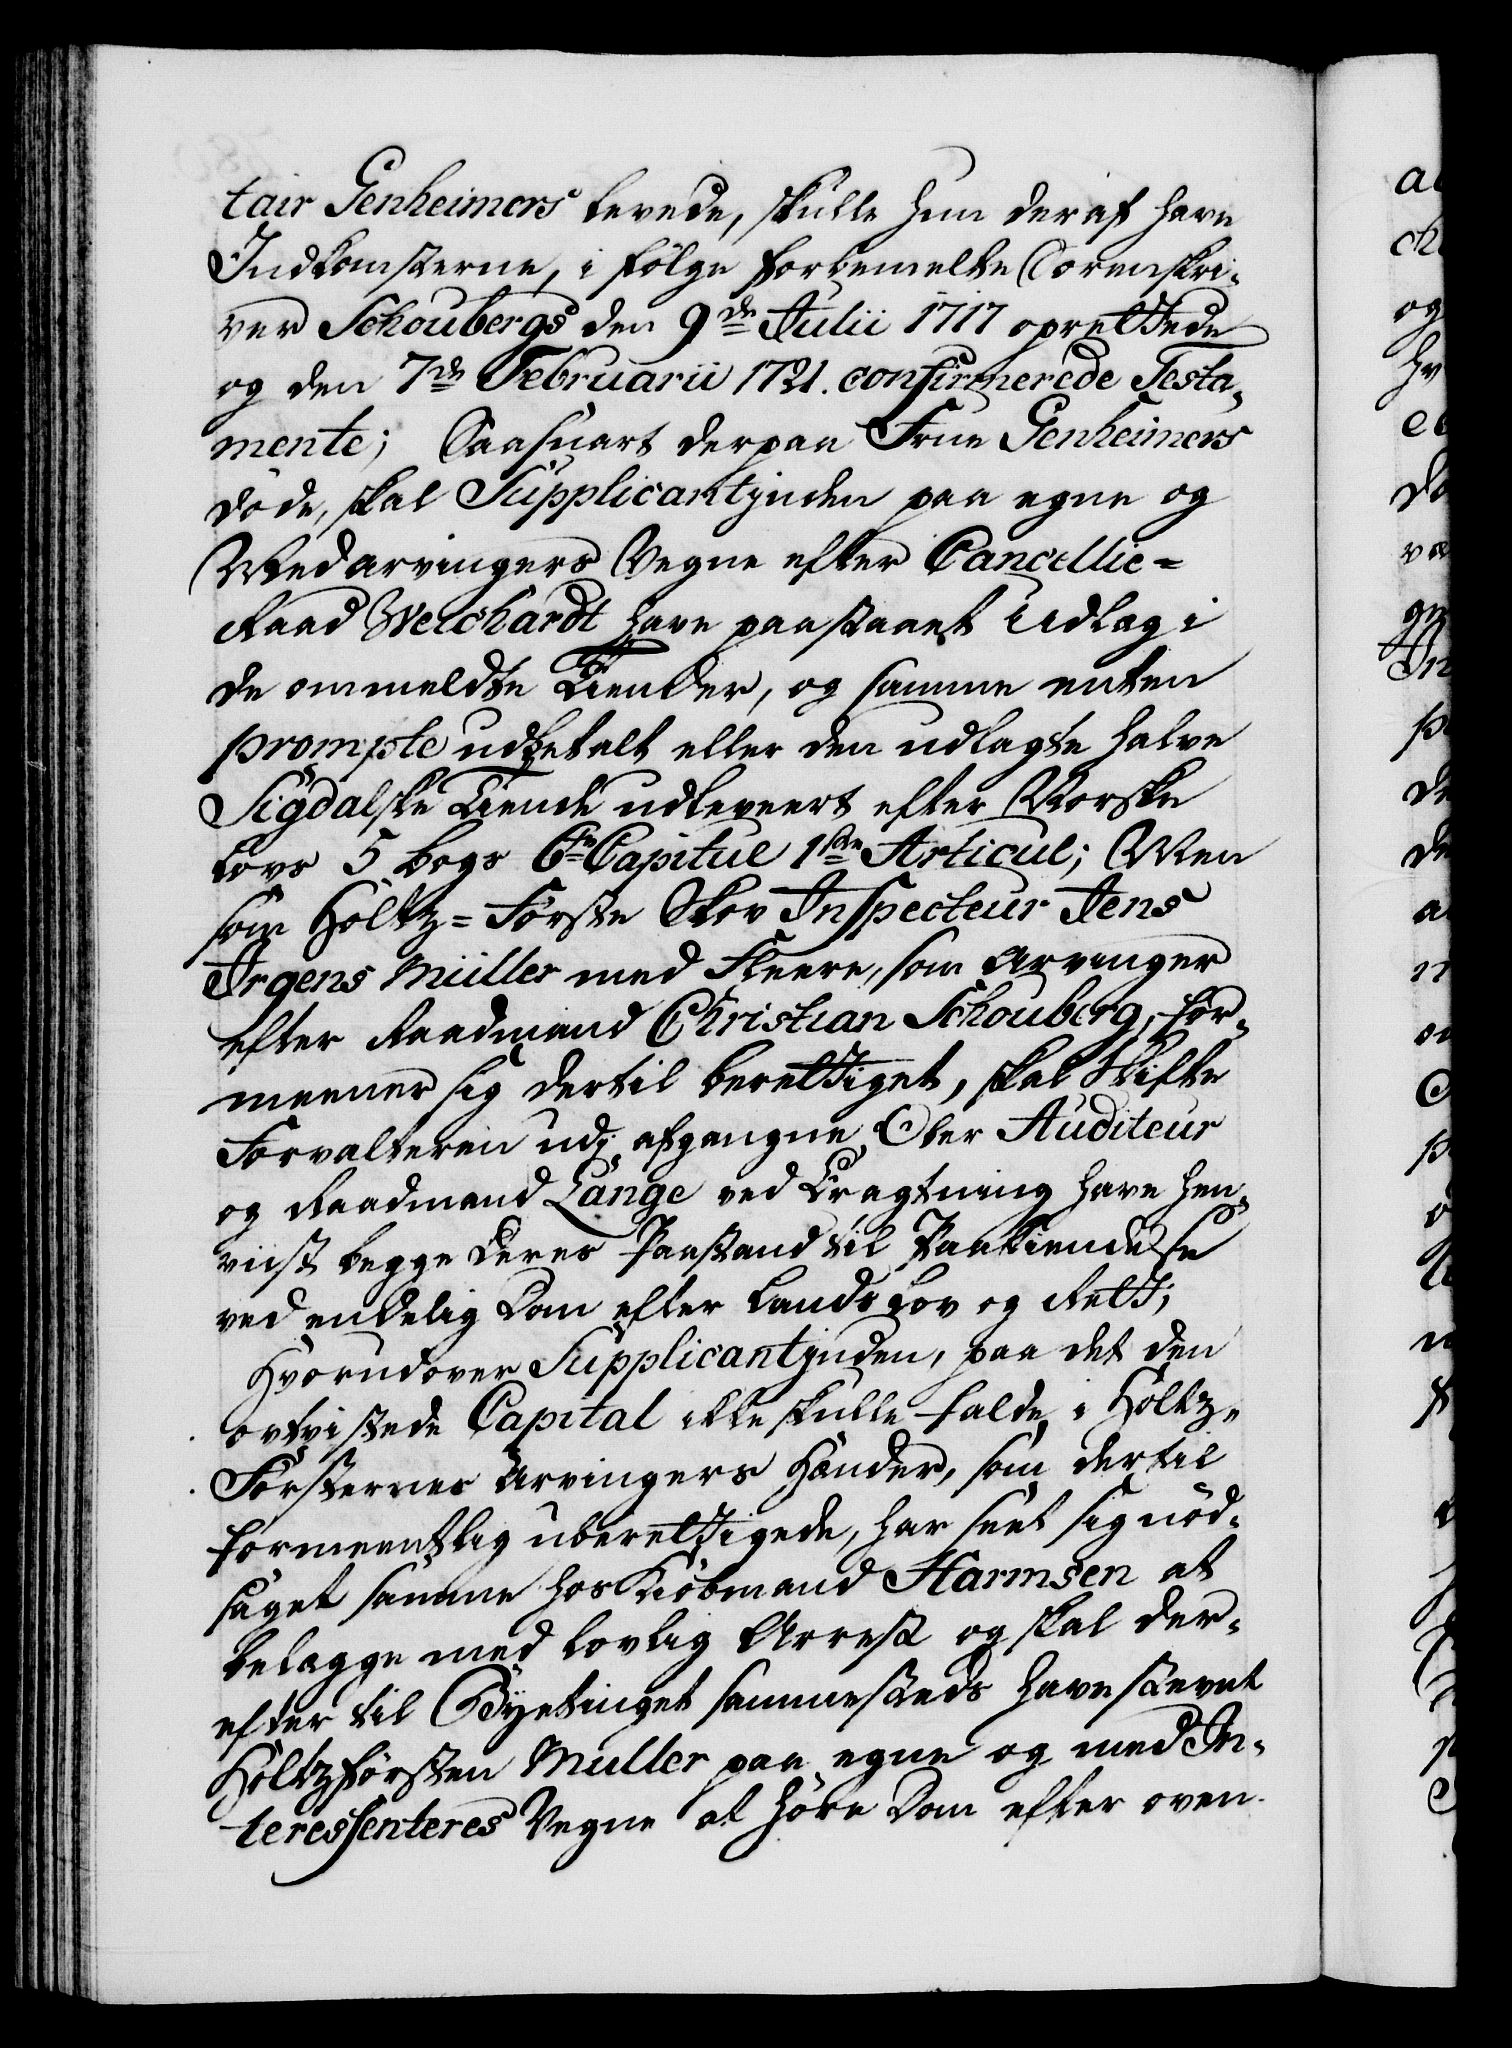 tair Genheimers levede, skulle hun deraf have
Indkomsterne, i fölge forbemelte Sorenskri-
ver Schoubergs den 9de Julii 1717 oprettede
og den 7de Februarii 1721. confirmerede Testa-
mente; Saasnart derpaa Frue Genheimers
döde, skal Supplicantinden paa egne og
Medarvingers Vegne efter Cancellie=
Raad Weichardt have paastaaet Udlæg i
de ommeldte Tiender, og samme enten
prompte udbetalt eller den udlagte halve
Sigdalske Tiende udleveert efter Norske
Lovs 5 Bogs 6te Capitul 1ste Articul; Men
som Holtz=Förste Skov Inspecteur Jens
Irgens Müller med Fleere, som Arvinger
efter Raadmand Christian Schouberg, for-
meener sig dertil berettiget, skal Skifte
Forvalteren udj afgangne Ober Auditeur
og Raadmand Lange ved Eragtning have hen-
viist begge deres Paastand til Paakiendelse
ved endelig Dom efter Lands Lov og Rett;
Hvorudover Supplicantinden, paa det den
omtvistede Capital ikke skulle falde i Holtz-
Försternes Arvingers Hænder, som dertil
formeentlig uberettigede, har seet sig nöd-
saget samme hos Kiöbmand Harmsen at
belægge med lovlig Arrest og skal der-
efter til Byetinget sammesteds have stevnt
Holtzförsten Muller paa egne og med In-
teressenteres Vegne at höre Dom efter oven-